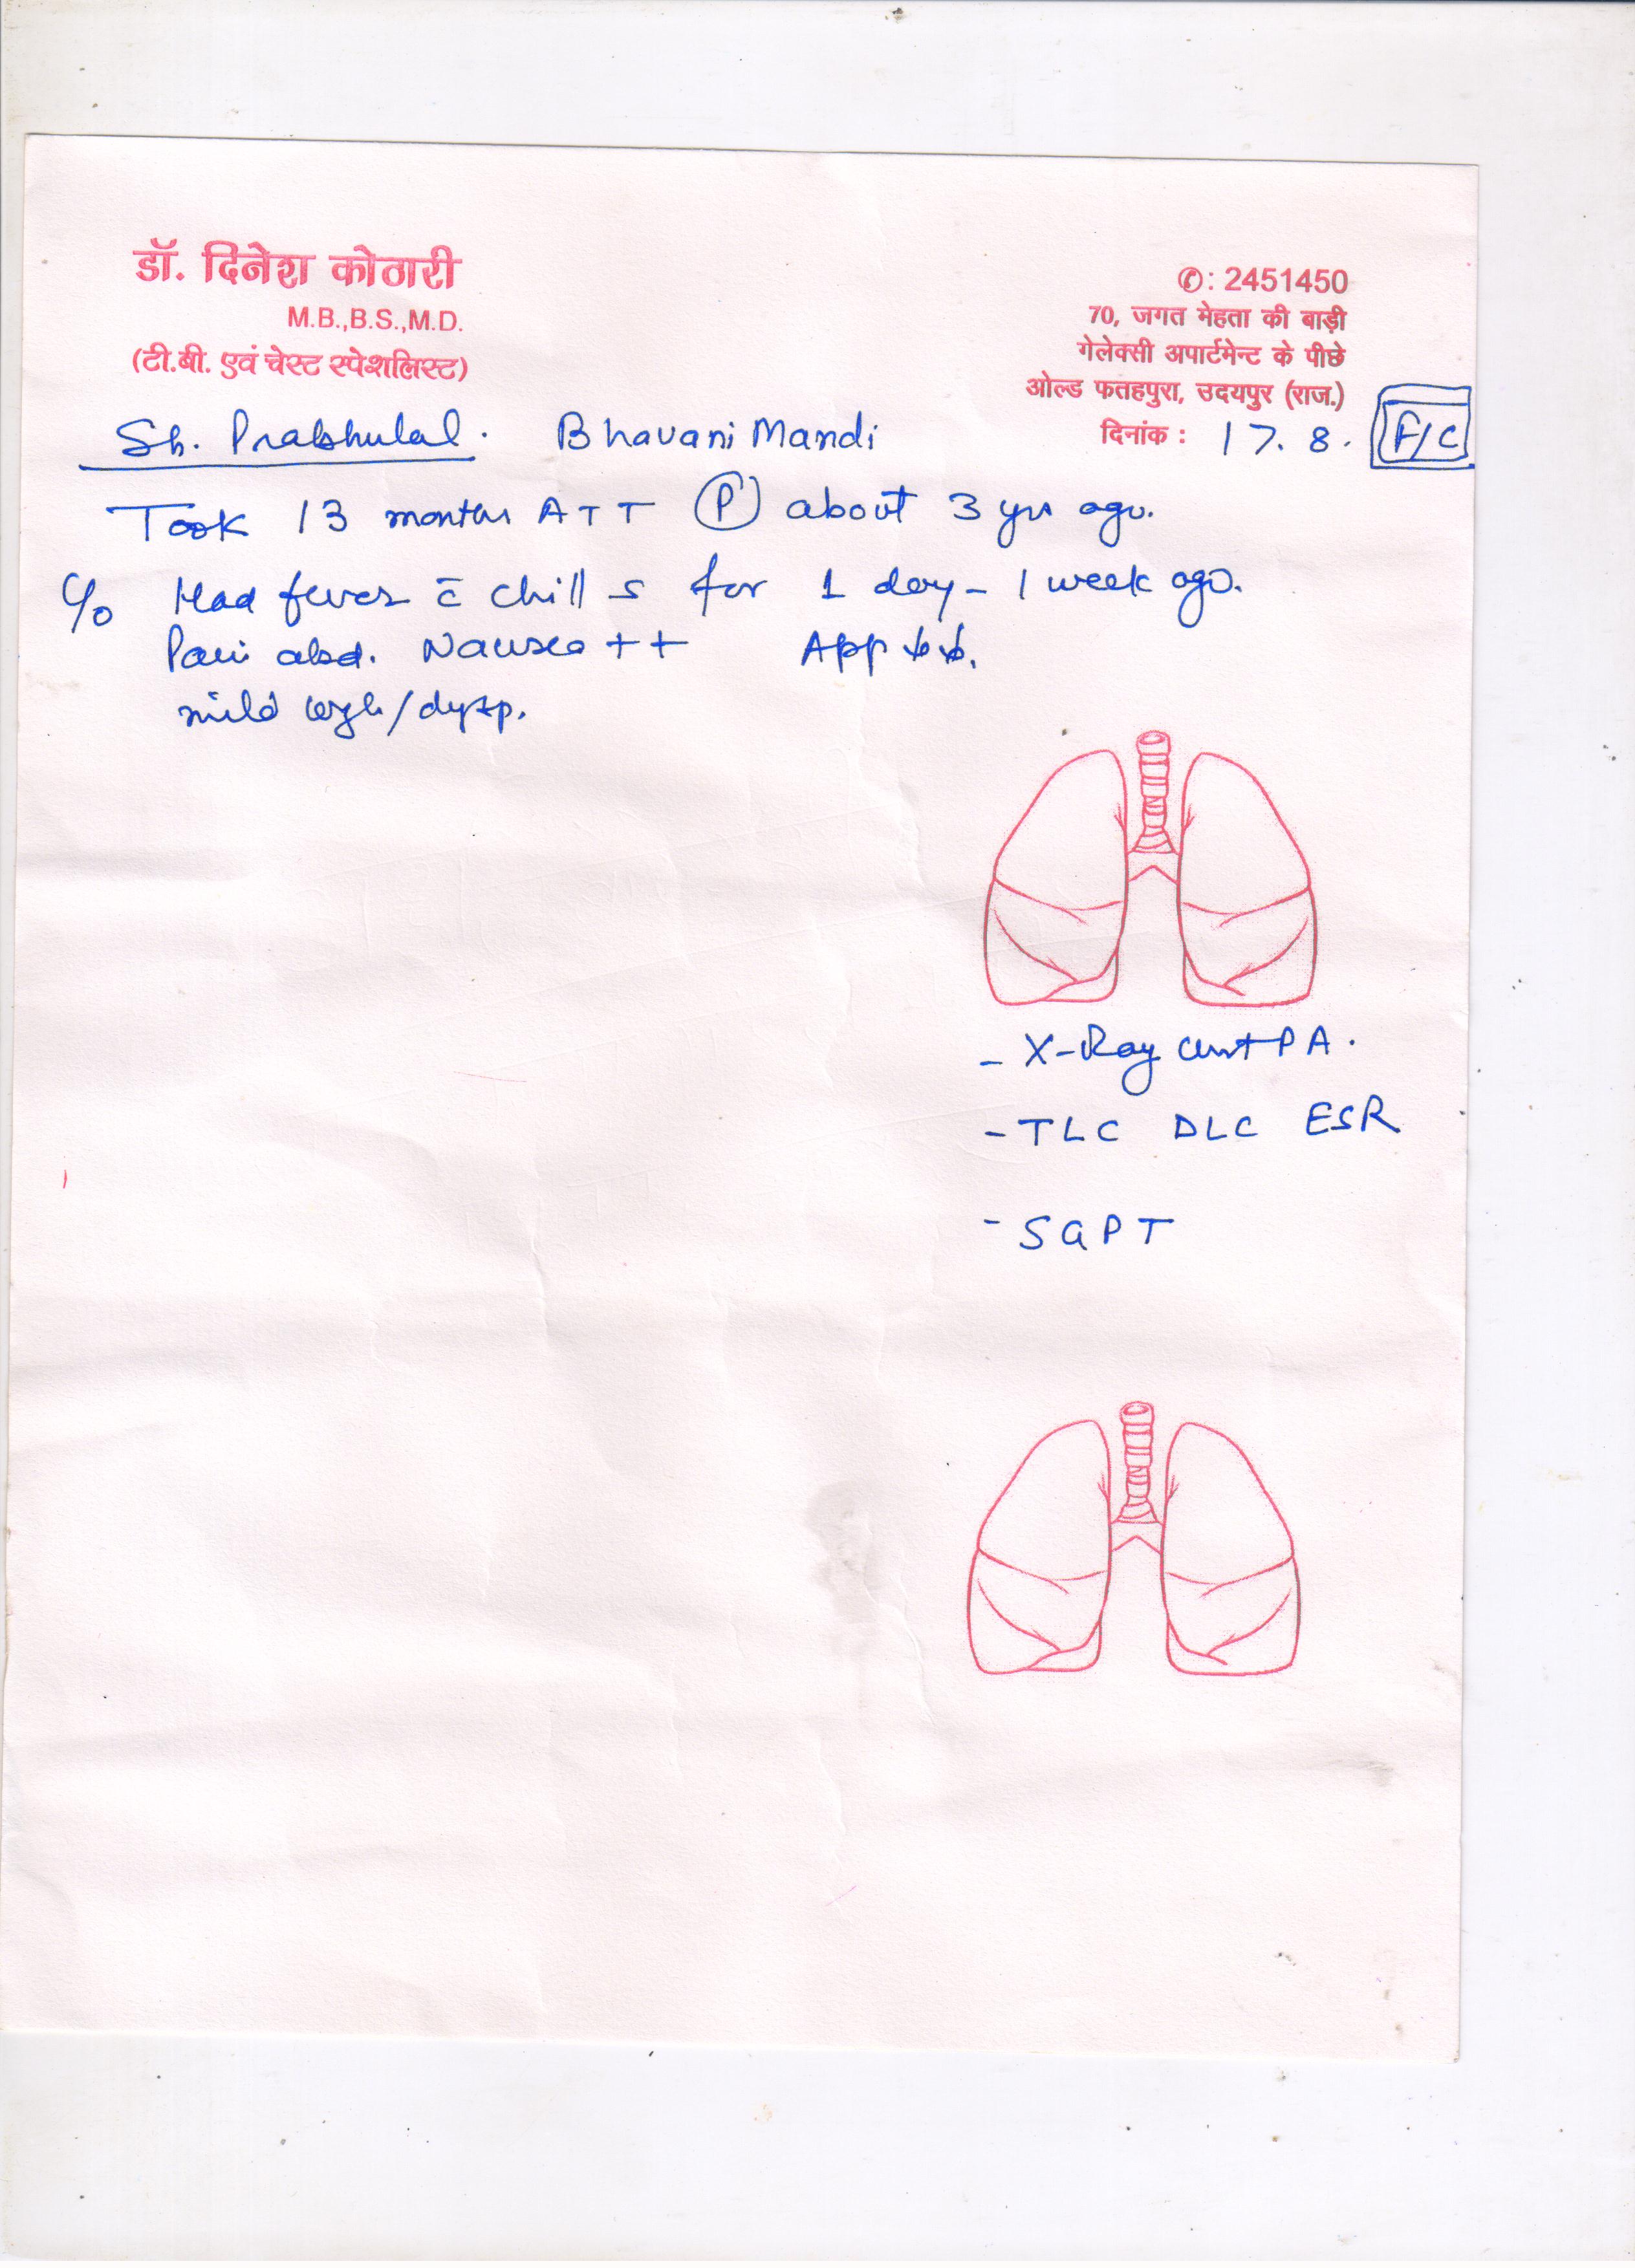 डॉ. दिनेश कोठारी
M.B.,B.S.,M.D.
(टी.बी. एवं चेस्ट स्पेशलिस्ट)
✆: 2451450
70, जगत मेहता की बाड़ी
गेलेक्सी अपार्टमेन्ट के पीछे
ओल्ड फतहपुरा, उदयपुर (राज.)
दिनांक : 17. 8. F/C
Sh. Prabhulal. Bhavani Mandi
Took 13 months ATT (P) about 3 yrs ago.
C/o Had fever c̄ chills for 1 day - 1 week ago.
Pain abd. Nausea ++ App ↓↓.
mild cough/dysp.
- X-Ray Chest PA.
- TLC DLC ESR
- SGPT